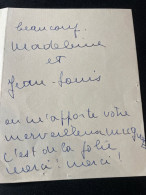 beaucoup.
Madeleine
et
Jean-Louis
on m'apporte votre
merveilleux
C'est de la folie
merci! merci!